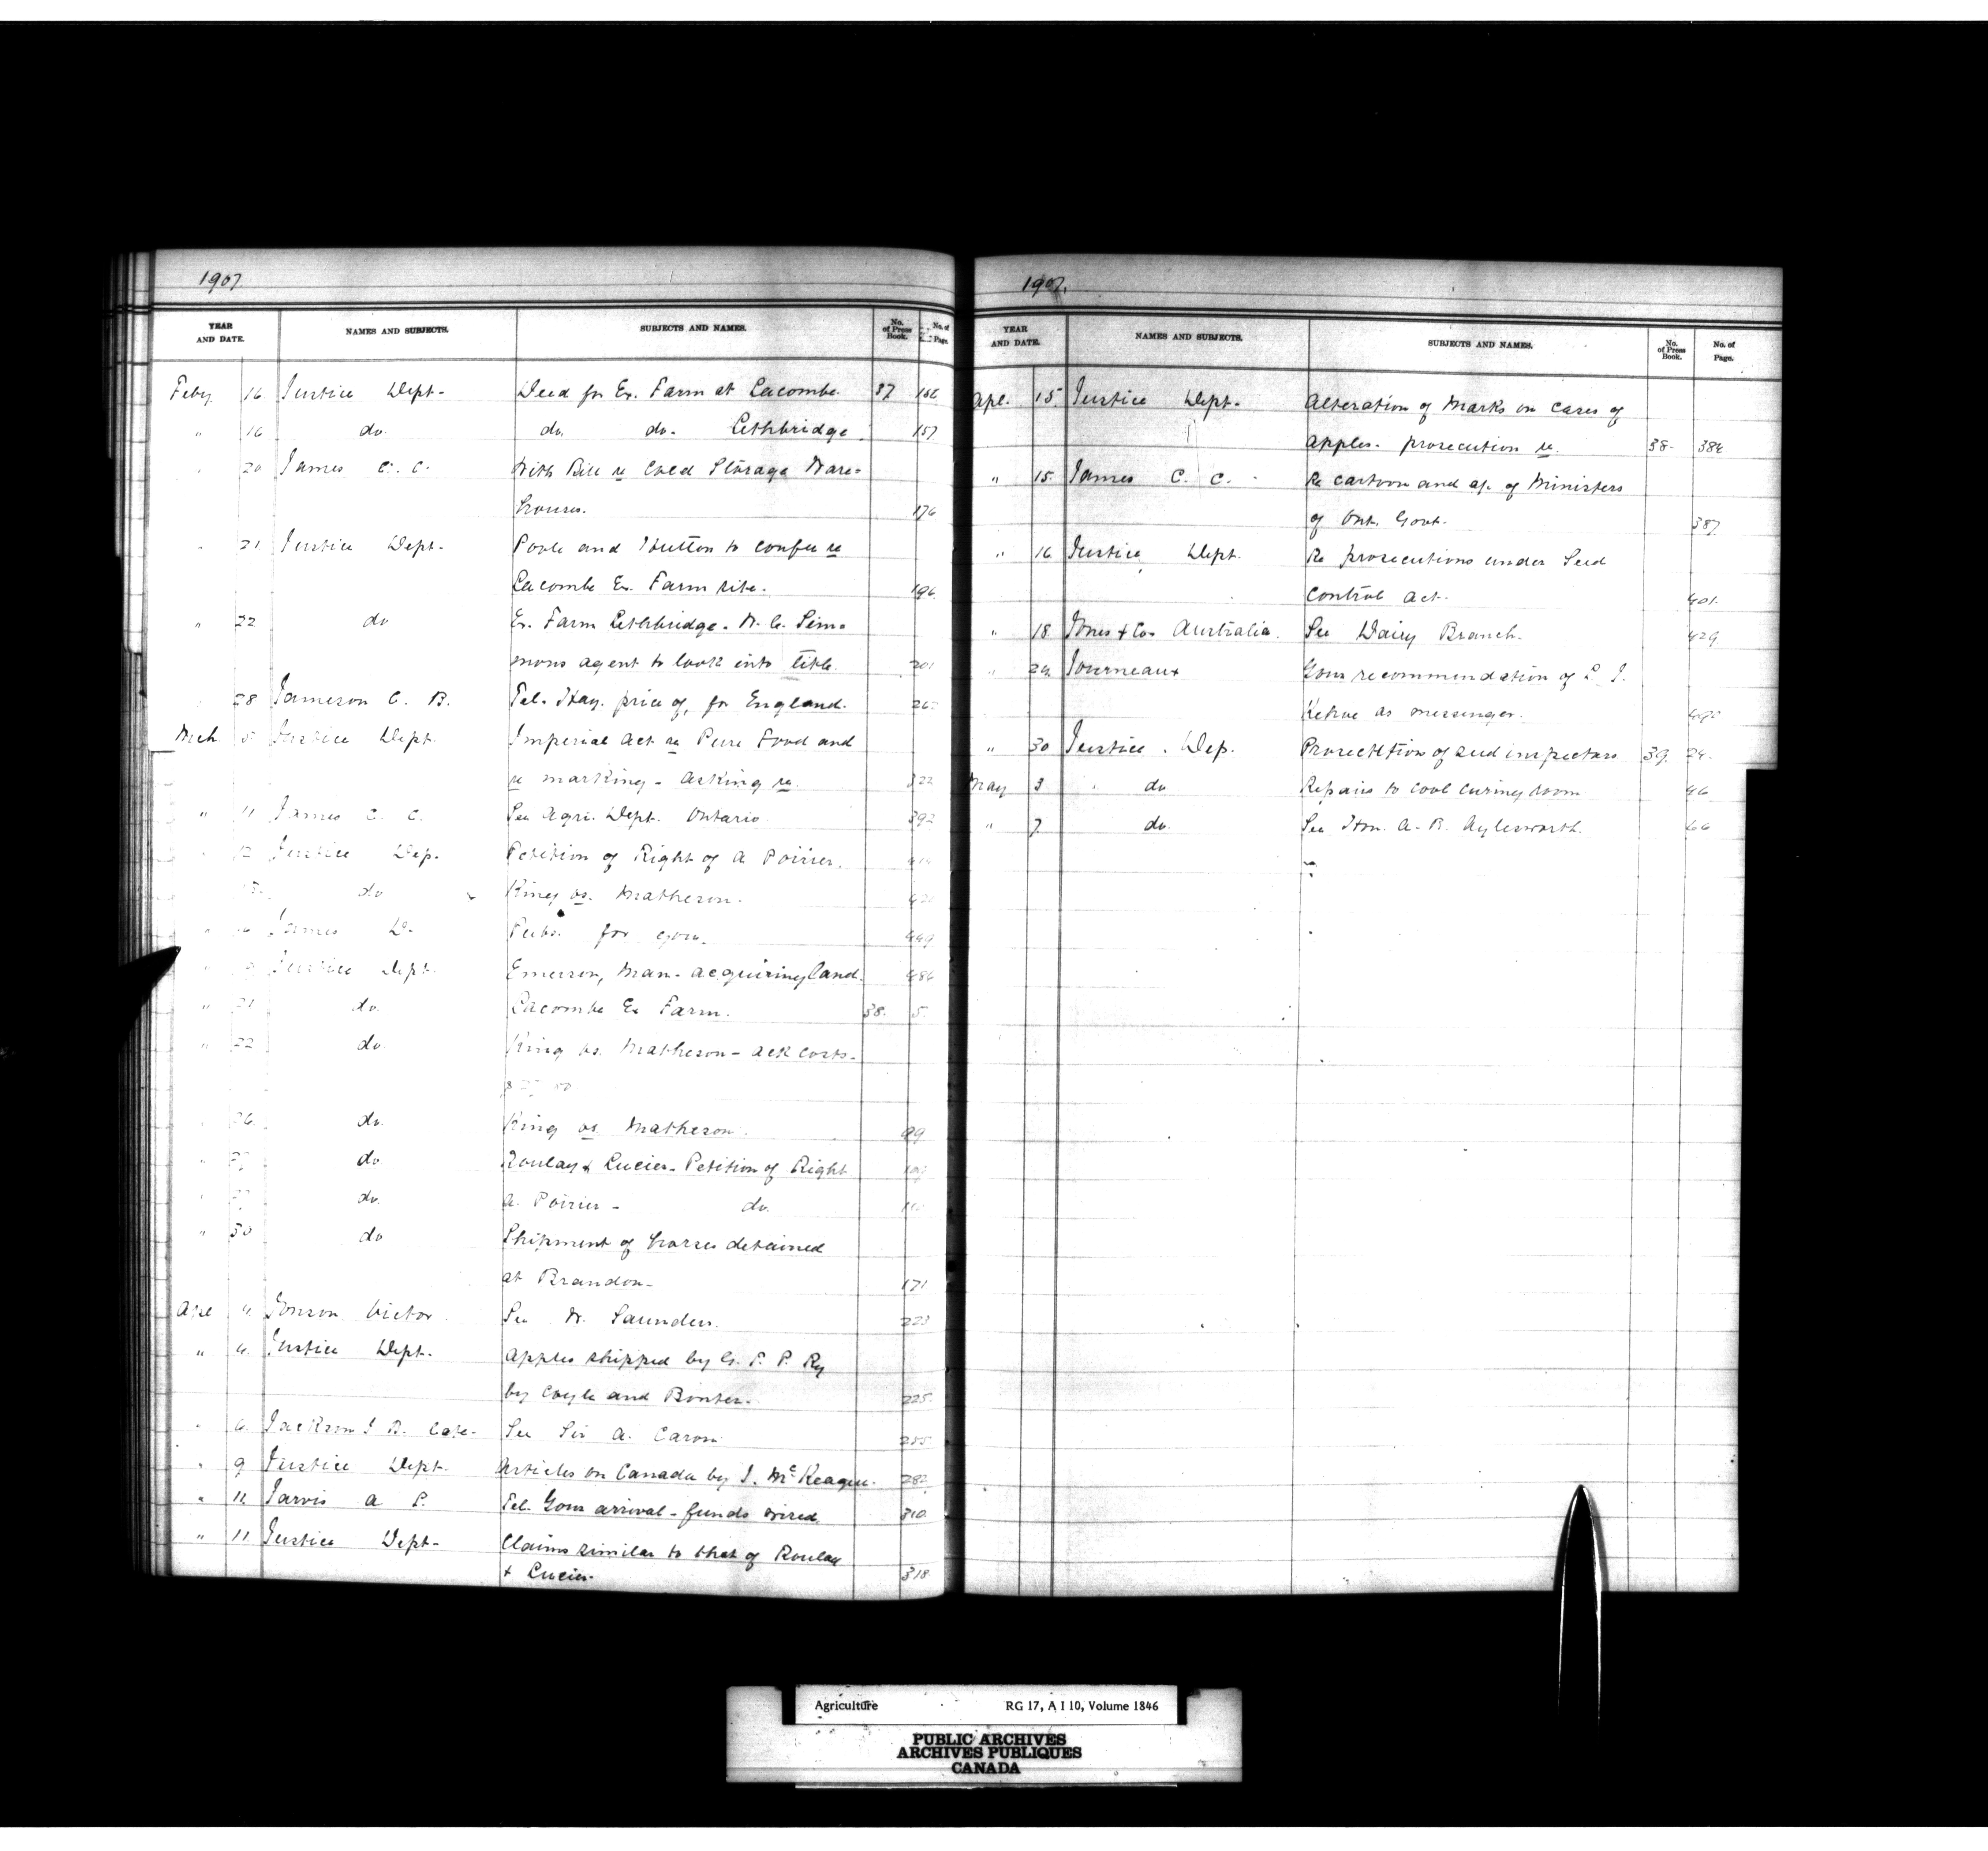 1907
YEAR AND DATE. NAMES AND SUBJECTS. SUBJECTS AND NAMES. No. of Press Book. No. of Page.
Feby. 16 Justice Dept- Deed for Ex. Farm at Lacombe. 37 156
" 16 do. do. do. Lethbridge. 157
" 20 James C. C. With Bill re Cold Storage Ware=
houses. 176
" 21 Justice Dept- Poole and Hutton to confer re
Lacombe Ex. Farm site. 196
" 22 do Ex. Farm Lethbridge. W. C. Sim=
mons agent to look into title. 201
28 Jameson C. B. Tel. Hay. price of, for England.
Mch 5 Justice Dept. Imperial Act re Pure Food and
re marking - asking re. 322
" 11 James C. C. See Agri. Dept. Ontario 392
" 12 Justice Dep. Petition of Right of A Poirier.
do King vs. Matheson.
James Pubs. for you. 449
" Justice Dept. Emerson, Man- acquiring land. 486
" 21 do. Lacombe Ex Farm. 38. 5.
" 22 do King vs. Matheson - ack costs-
26. do. King vs Matheson. 99
" do Roulay & Lucier- Petition of Right
" do. A. Poirier - do.
" 30 do Shipment of horses detained
at Brandon- 171
Apl 4 Victor See W. Saunders. 223
" 6. Justice Dept. Apples shipped by G. T. P. Ry
by Coyle and Bonter. 225
" 6. Jackson J B. Cape. See Sir A. Caron.
" 9 Justice Dept. Articles on Canada by J. McReague. 282
" 11 Jarvis A P. Tel. Your arrival - funds wired. 310
" 11. Justice Dept- Claims similar to that of Roulay
+ Lucier. 318
1907.
YEAR AND DATE. NAMES AND SUBJECTS. SUBJECTS AND NAMES. No. of Press Book. No. of Page.
Apl. 15. Justice Dept- Alteration of Marks on cases of
apples- prosecution re. 38- 384
" 15. James C. C. Re cartoon and of Ministers
of Ont. Govt. 387
" 16 Justice Dept. Re prosecutions under Seed
Control Act. 401.
" 18 Jones & Co Australia. See Dairy Branch. 429
" 24. Journeaux Your recommendation of
Kehoe as messenger.
" 30 Justice. Dep. Prosecution of seed inspectors 39. 24.
May 3 do Repairs to cool curing room 46
" 7. do. See Hon. A. B. Aylesworth. 66
Agriculture RG 17, A I 10, Volume 1846
PUBLIC ARCHIVES
ARCHIVES PUBLIQUES
CANADA